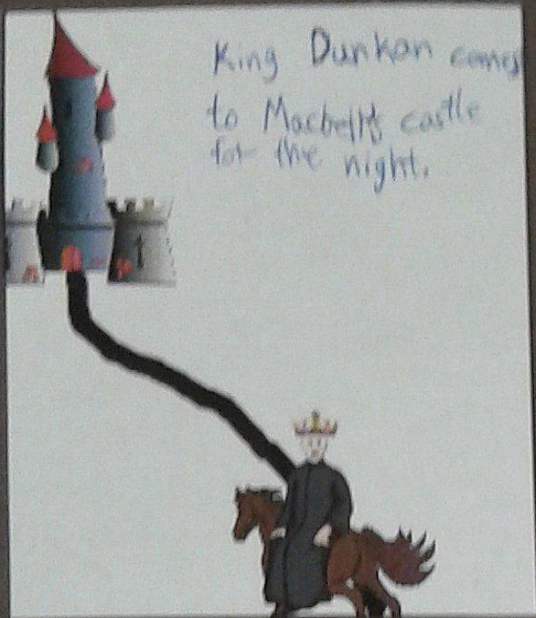 King Dunkan comes
to Macbeth's castle
for the night.
1